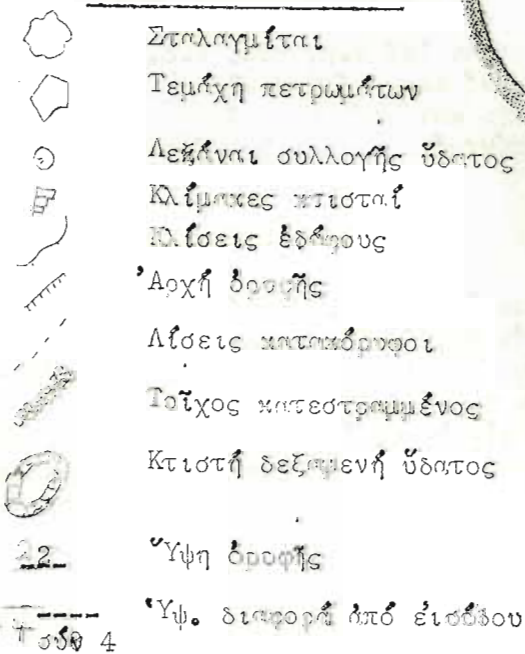 Σταλαγμίται
Τεμάχη πετρωμάτων
Λεκάναι συλλογῆς ὕδατος
Κλίμακες κτισταί
Κλίσεις ἐδάφους
Ἀρχή ὀροφῆς
Λίσεις κατακόρυφοι
Τοῖχος κατεστραμμένος
Κτιστή δεξαμενή ὕδατος
22 Ὕψη ὀροφῆς
Ὑψ. διαφορά ἀπό εἰσόδου
σύν 4